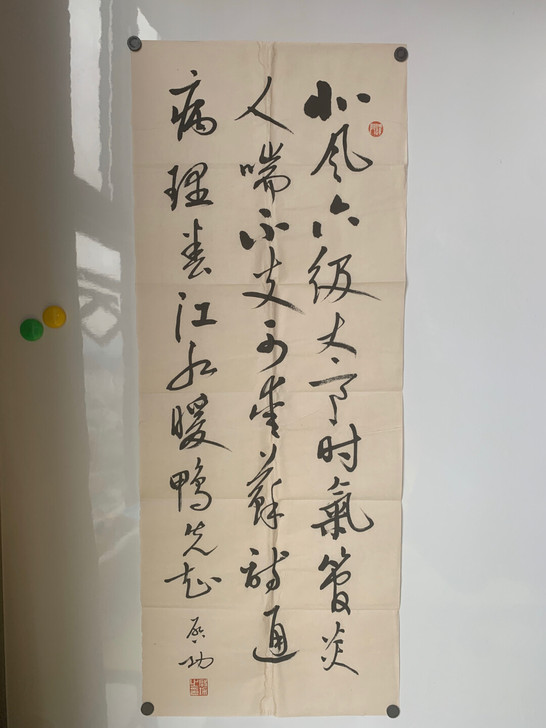 北风六级大寒时氣管炎
人喘不支可愛蘇詩通
病理春江水暖鸭先知
启功